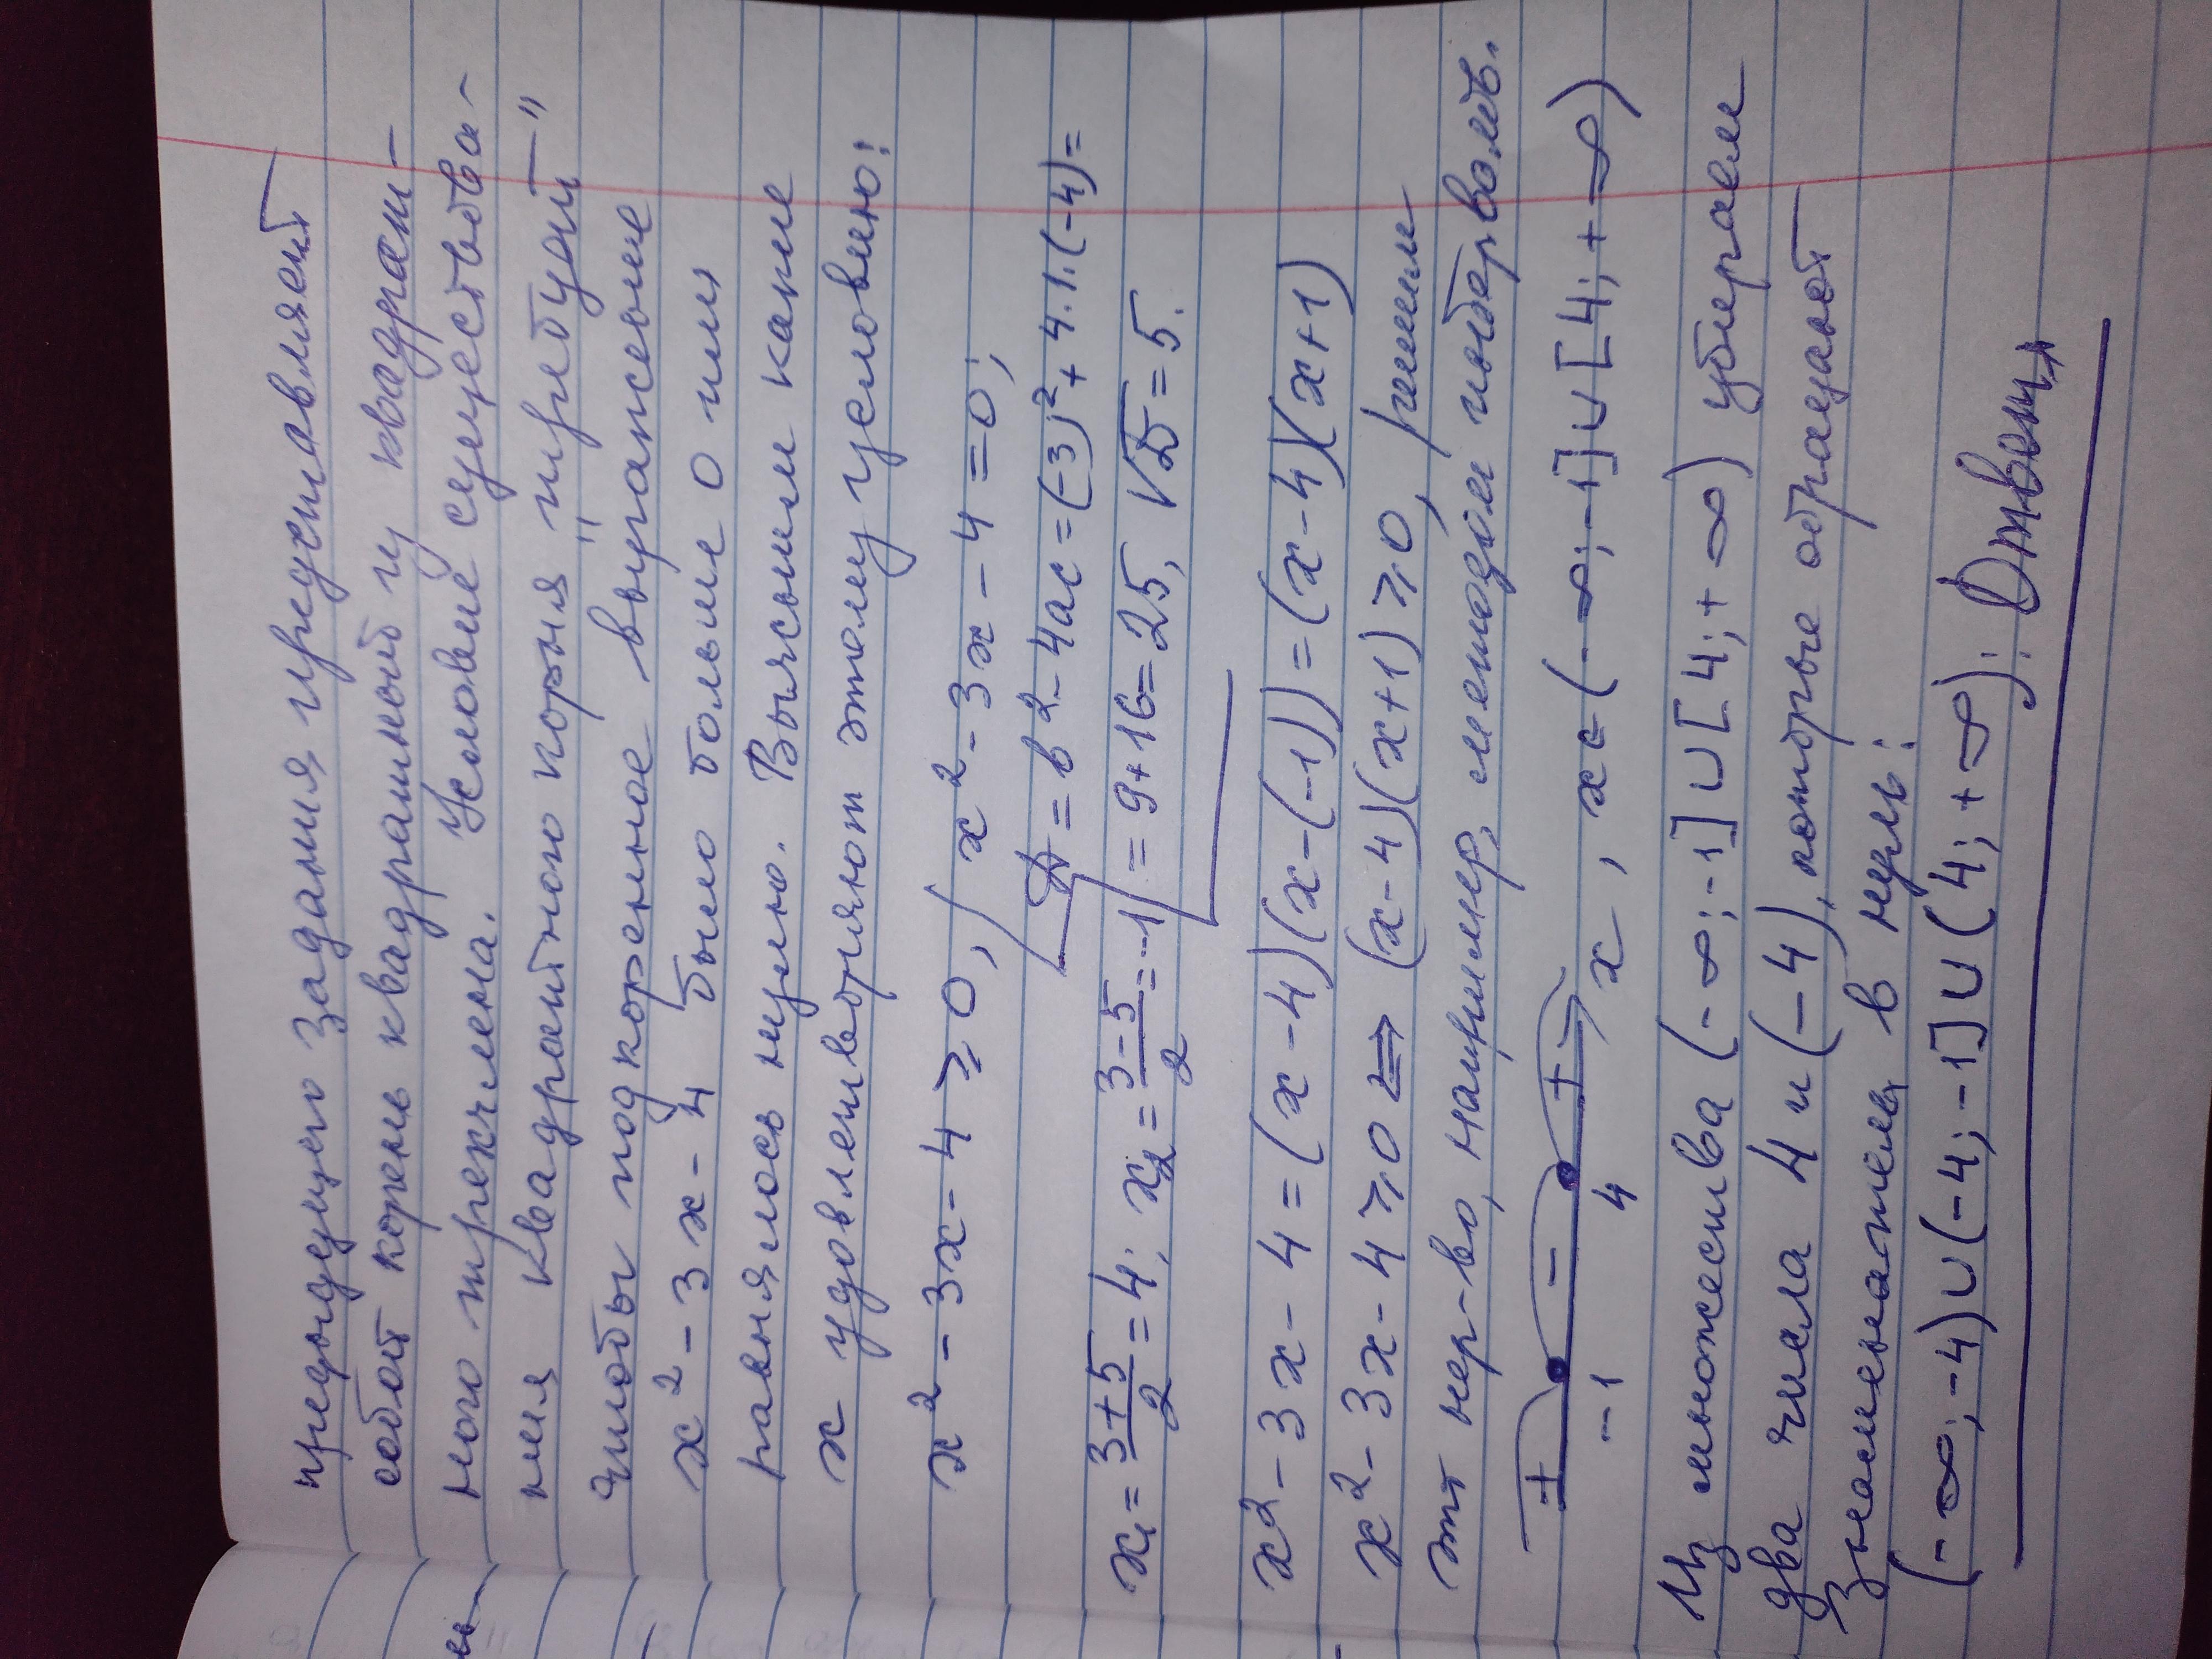 предыдущего задания представляет
собой корень квадратный из квадрат-
ного трёхчлена. Условие существова-
ния квадратного корня "требует"
чтобы подкоренное выражение
x² - 3x - 4 было больше 0 или
равнялось нулю. Выясним какие
x удовлетворяют этому условию:
x² - 3x - 4 ⩾ 0, x² - 3x - 4 = 0;
D = b² - 4ac = (-3)² + 4·1·(-4) =
x₁ = (3+5)/2 = 4; x₂ = (3-5)/2 = -1 = 9+16 = 25, √D = 5.
x² - 3x - 4 = (x - 4)(x - (-1)) = (x - 4)(x + 1)
x² - 3x - 4 ⩾ 0 ⟺ (x - 4)(x + 1) ⩾ 0, решим
это нер-во, например, методом интервалов.
+ - + x, x ∈ (-∞; -1] ∪ [4; +∞)
-1 4
Из множества (-∞; -1] ∪ [4; +∞) убираем
два числа 4 и (-4), которые обращают
знаменатель в нуль:
(-∞; -4) ∪ (-4; -1] ∪ (4; +∞): Ответ